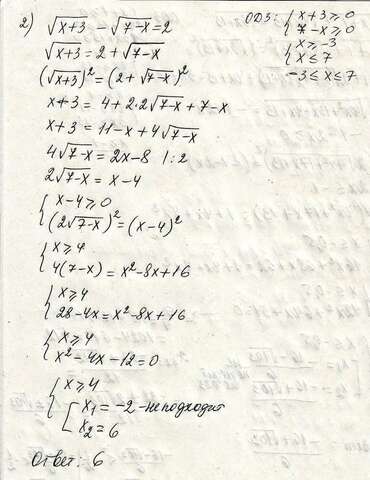 2) √(x+3) − √(7−x) = 2
ОДЗ: { x+3 ⩾ 0
7−x ⩾ 0
{ x ⩾ −3
x ⩽ 7
−3 ⩽ x ⩽ 7
√(x+3) = 2 + √(7−x)
(√(x+3))² = (2 + √(7−x))²
x+3 = 4 + 2·2√(7−x) + 7−x
x+3 = 11−x + 4√(7−x)
4√(7−x) = 2x−8 | :2
2√(7−x) = x−4
{ x−4 ⩾ 0
(2√(7−x))² = (x−4)²
{ x ⩾ 4
4(7−x) = x²−8x+16
{ x ⩾ 4
28−4x = x²−8x+16
{ x ⩾ 4
x²−4x−12 = 0
{ x ⩾ 4
[ x₁ = −2 - не подходит
x₂ = 6
Ответ: 6